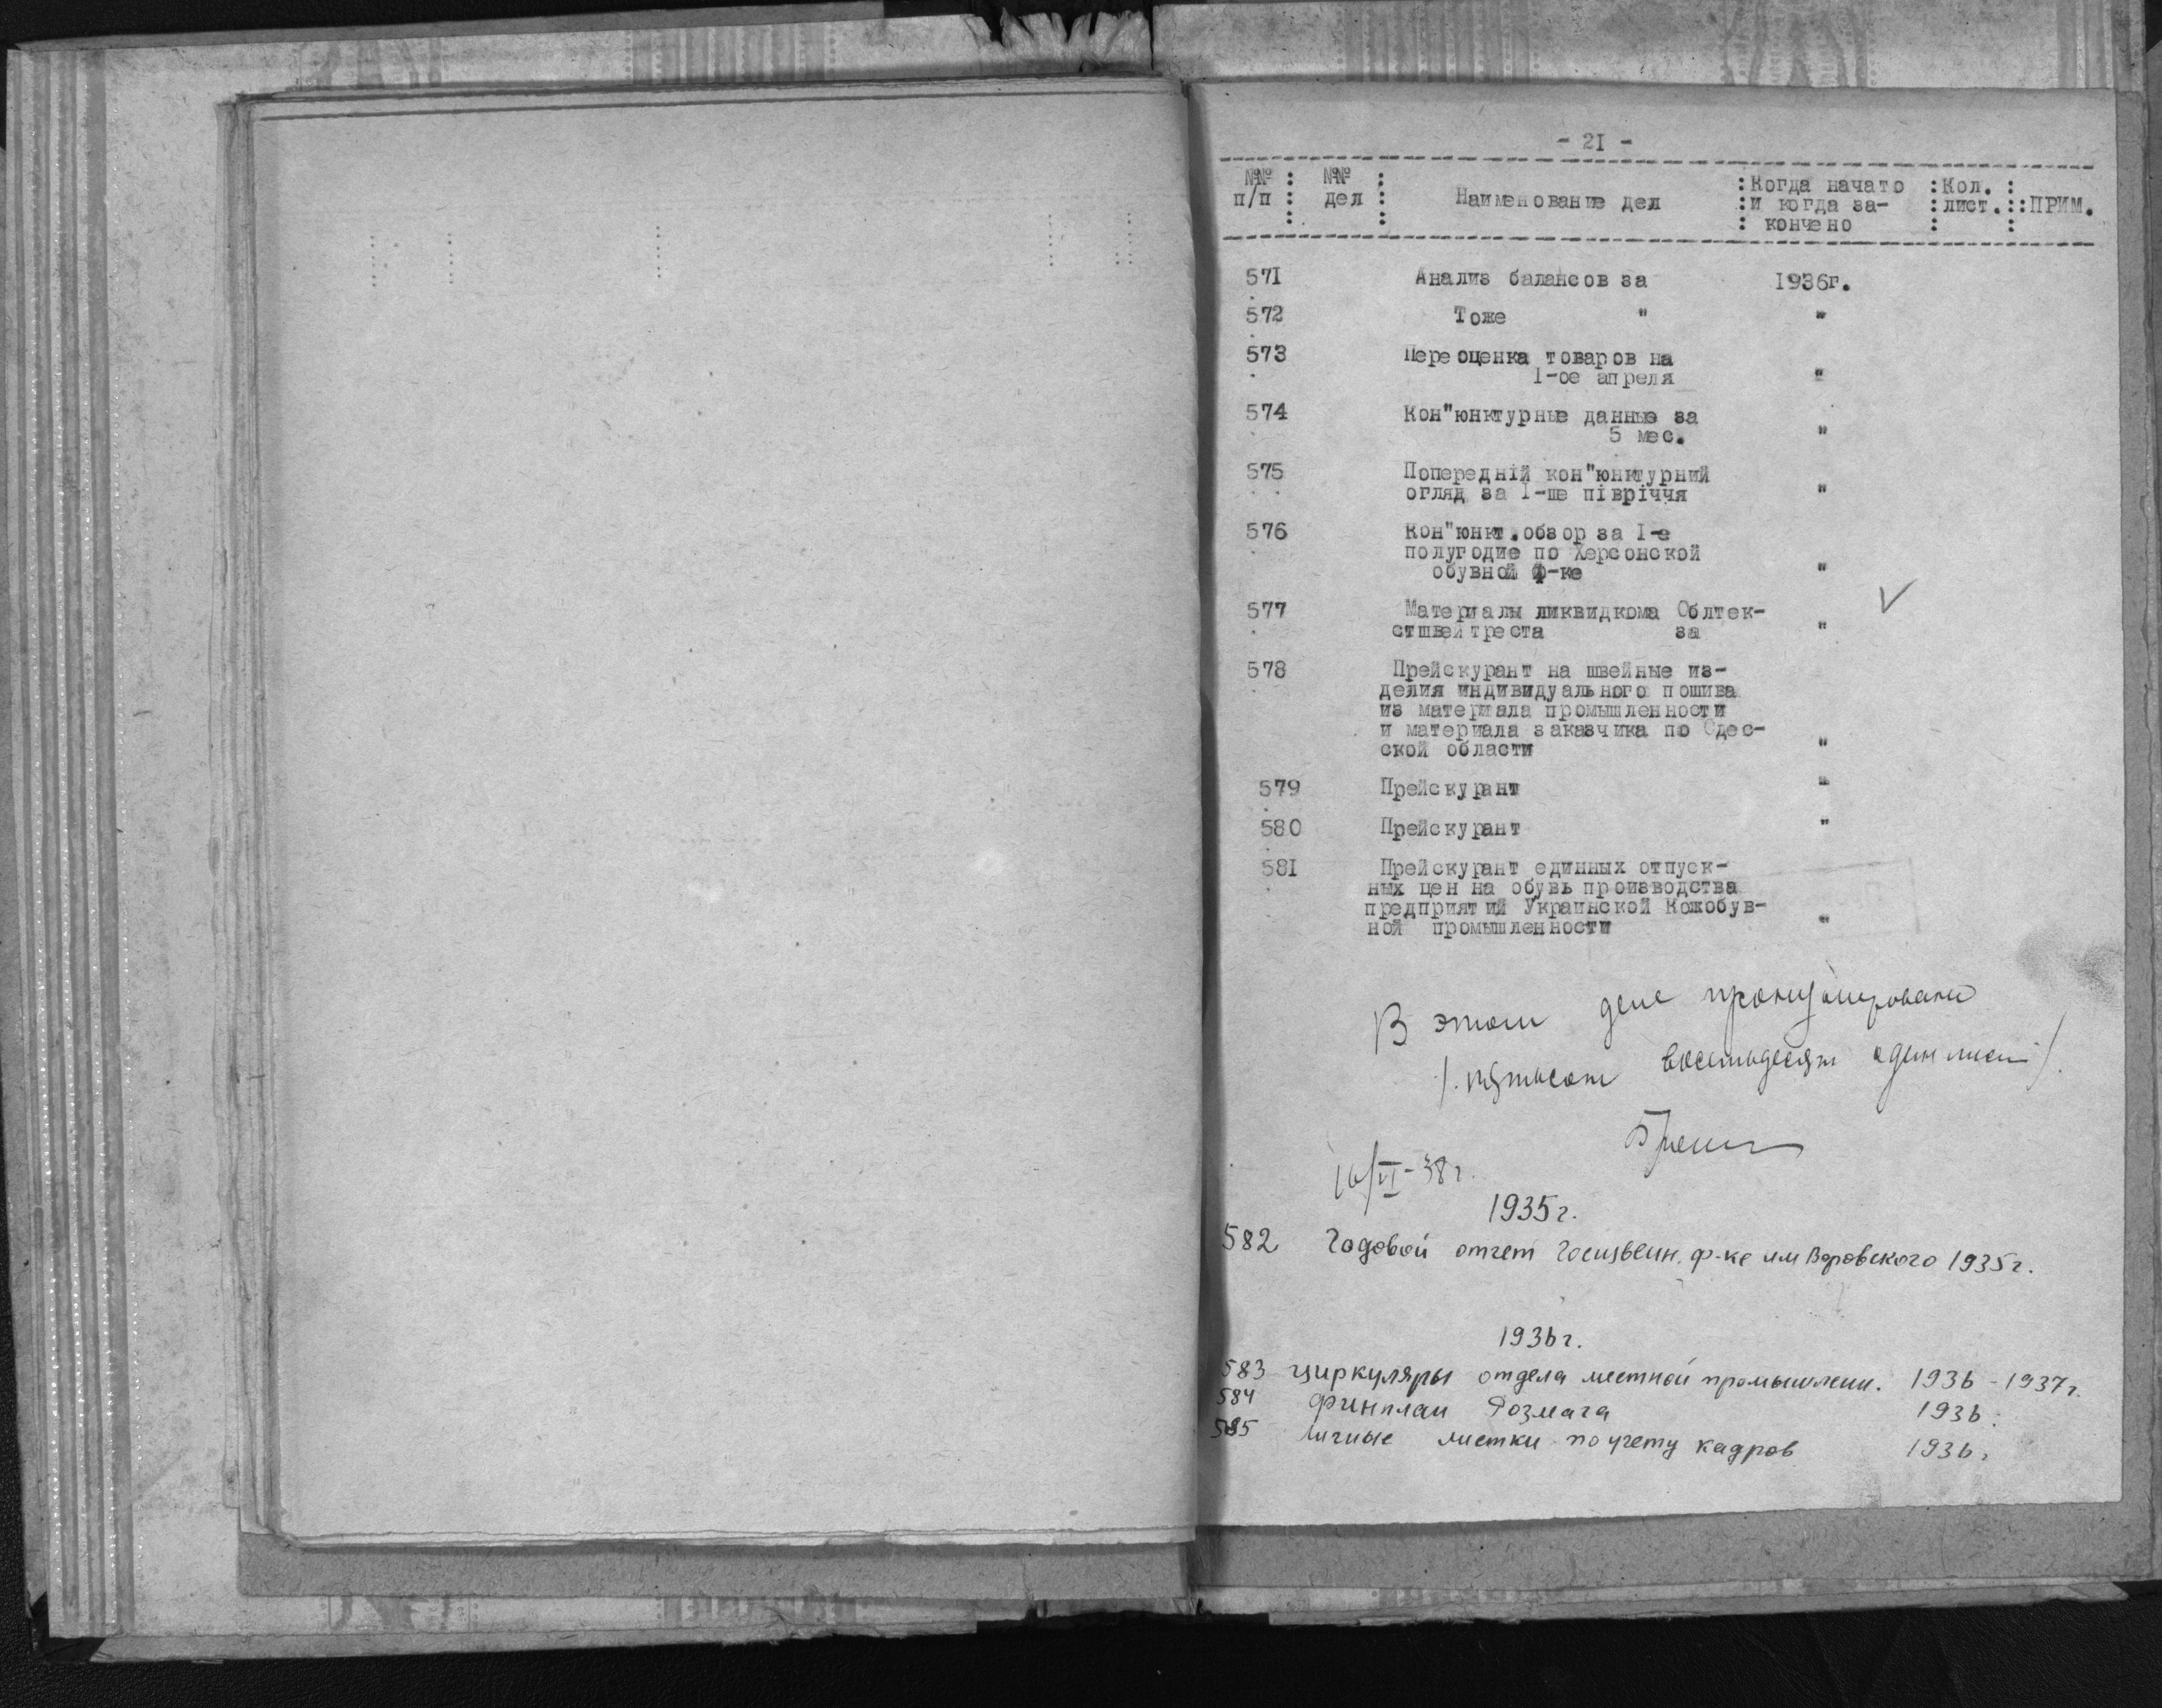 - 2I -
№№ п/п : №№ дел : Наименование дел : Когда начато и когда закончено : Кол. лист. : ПРИМ.
571 Анализ балансов за 1936г.
572 Тоже " "
573 Переоценка товаров на
I-ое апреля "
574 Кон"юнктурные данные за
5 мес. "
575 Попередній кон"юнктурний
огляд за I-ше півріччя "
576 Кон"юнкт.обзор за I-е
полугодие по Херсонской
обувной ф-ке "
577 Материалы ликвидкома Облтек-
стшвейтреста за "
578 Прейскурант на швейные из-
делия индивидуального пошива
из материала промышленности
и материала заказчика по Одес-
ской области "
579 Прейскурант "
580 Прейскурант "
58I Прейскурант единных отпуск-
ных цен на обувь производства
предприятий Украинской Кожобув-
ной промышленности "
В этом деле пронумеровано
/. пятьсот восемьдесят один лист /.
16/VI-38г.
1935г.
582 Годовой отчет ф-ке им Воровского 1935г.
1936г.
583 Циркуляры отдела местной промышленн. 1936-1937г.
584 Финплан Розмага 1936.
585 Личные листки по учету кадров 1936.